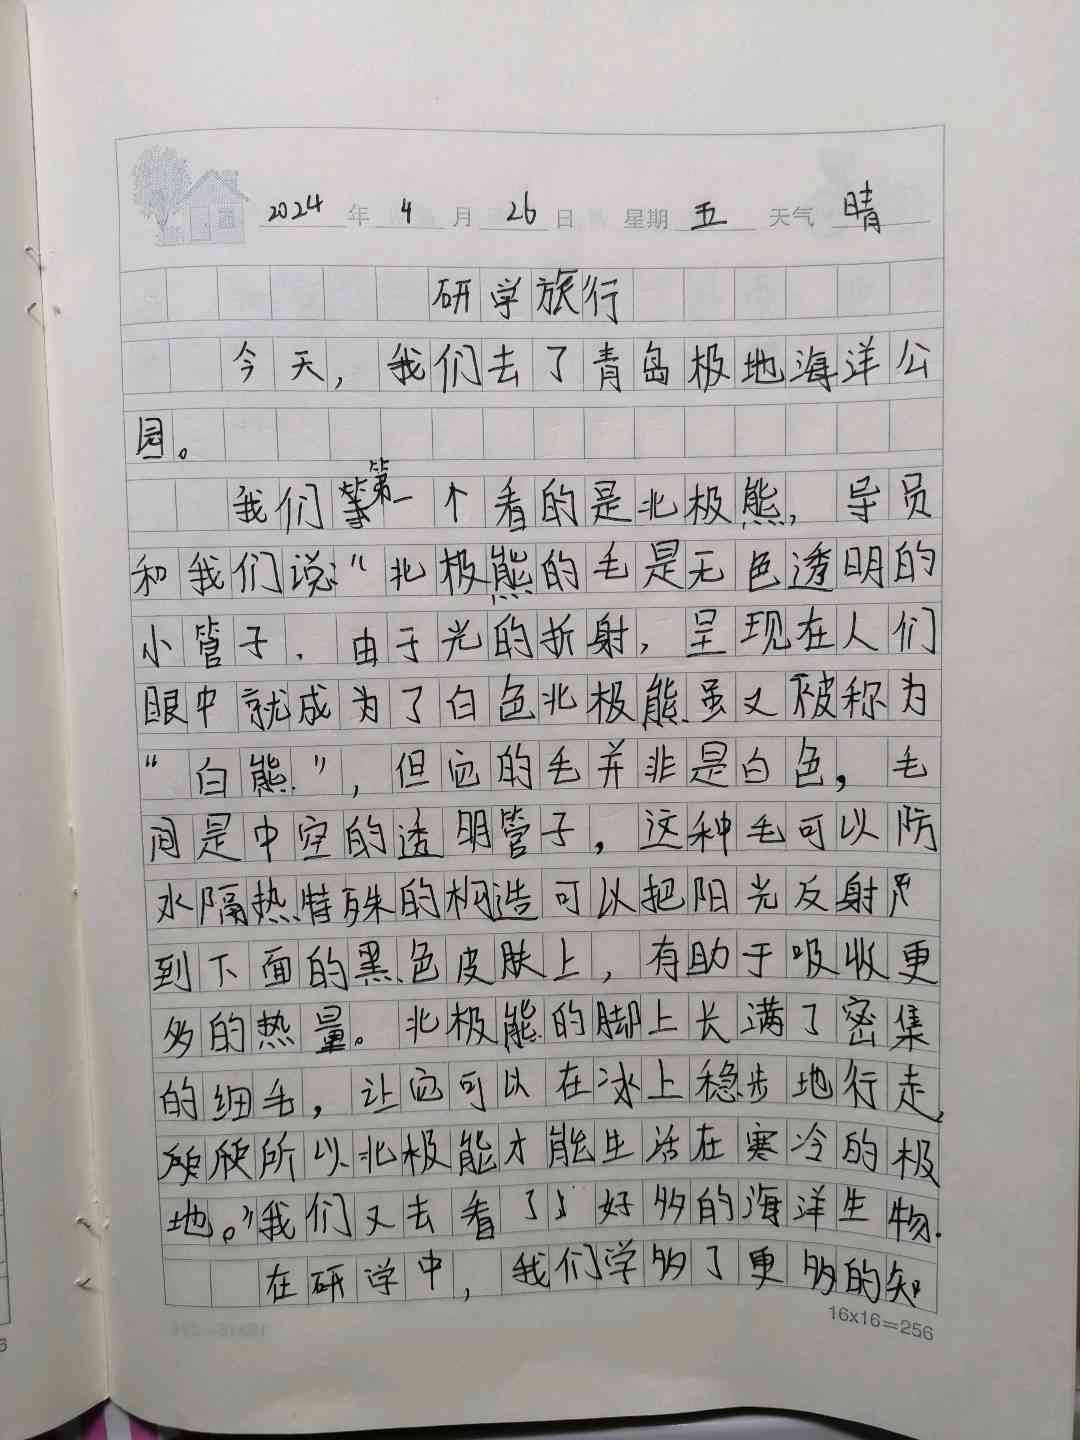 2024年 4月 26日 星期 五 天气 晴
研学旅行
今天，我们去了青岛极地海洋公
园。
我们第一个看的是北极熊，导员
和我们说：“北极熊的毛是无色透明的
小管子，由于光的折射，呈现在人们
眼中就成为了白色北极熊虽又被称为
“白熊”，但它的毛并非是白色，毛
间是中空的透明管子，这种毛可以防
水隔热特殊的构造可以把阳光反射
到下面的黑色皮肤上，有助于吸收更
多的热量。北极熊的脚上长满了密集
的细毛，让它可以在冰上稳步地行走，
所以北极能才能生活在寒冷的极
地。”我们又去看了好多的海洋生物.
在研学中，我们学多了更多的知
16x16=256